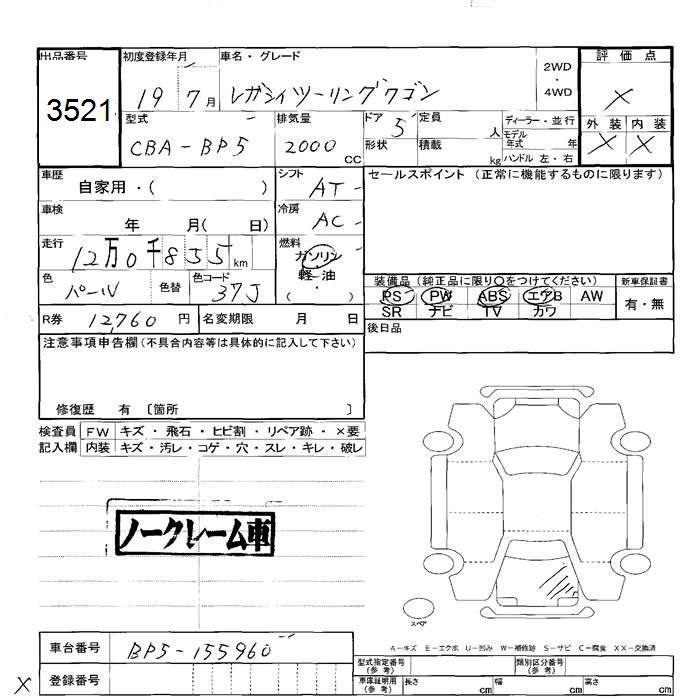 出品番号 初度登録年月 車名・グレード 2WD・4WD 評価点
3521 19 7月 レガシィツーリングワゴン X
型式 排気量 ドア 定員 ディーラー・並行 外装 内装
CBA-BP5 2000CC 5 人 モデル年式 年 X X
形状 積載 kg ハンドル 左・右
車歴 自家用・( ) シフト AT セールスポイント (正常に機能するものに限ります)
車検 年 月( 日) 冷房 AC
走行 12万0千855km 燃料 ガソリン
軽・油
( ・ )
色 パール 色替 色コード 37J
装備品 (純正品に限り○をつけてください) 新車保証書
PS PW ABS エアB AW 有・無
SR ナビ TV カワ
R券 12,760円 名変期限 月 日 後日品
注意事項申告欄 (不具合内容等は具体的に記入して下さい)
修復歴 有 〔箇所 〕
検査員 FW キズ・飛石・ヒビ割・リペア跡・×要
記入欄 内装 キズ・汚レ・コゲ・穴・スレ・キレ・破レ
ノークレーム車
スペア
A-キズ E-エクボ U-凹み W-補修跡 S-サビ C-腐食 XX-交換済
車台番号 BP5-155960
型式指定番号 (参考) 類別区分番号 (参考)
X 登録番号 車庫証明用 (参考) 長さ cm 幅 cm 高さ cm